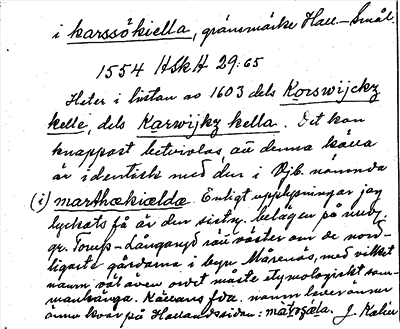 i karssökiella, gränsmärke Hall.-Smål.
1554 HSkH 29:65
Heter i listan av 1603 dels Korswijckz
kelle, dels Karwijkz kella. Det kan
knappast betvivlas, att denna källa
är identisk med den i Vjb. nämnda
(i) marthækiældæ. Enligt upplysningar jag
lyckats få är den sistn. belägen på
gr. Torup-Långaryd rätt väster om de nord-
ligaste gårdarna i byn Mårenäs, med vilket
namn väl även ordet måste etymologiskt sam-
manhänga. Källans fda. namn lever ännu
kvar på Hallandssidan: J. Kalén